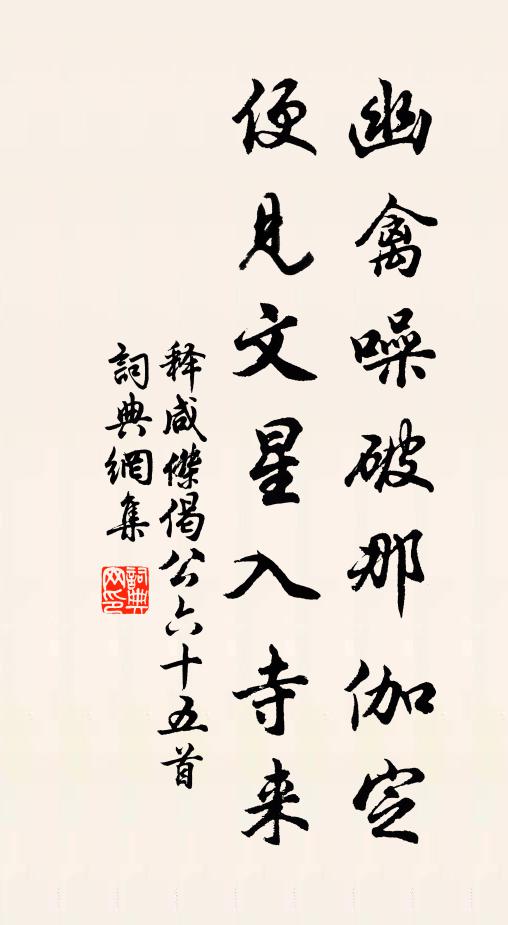 幽禽噪破那伽定
便見文星入寺来
释咸傑偈公六十五首
詞典網集
詞典网印